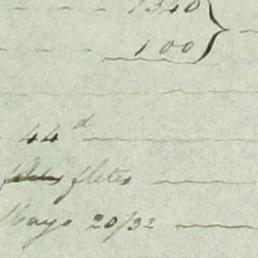 1340
100
44 d
fletes
Mayo 20/32